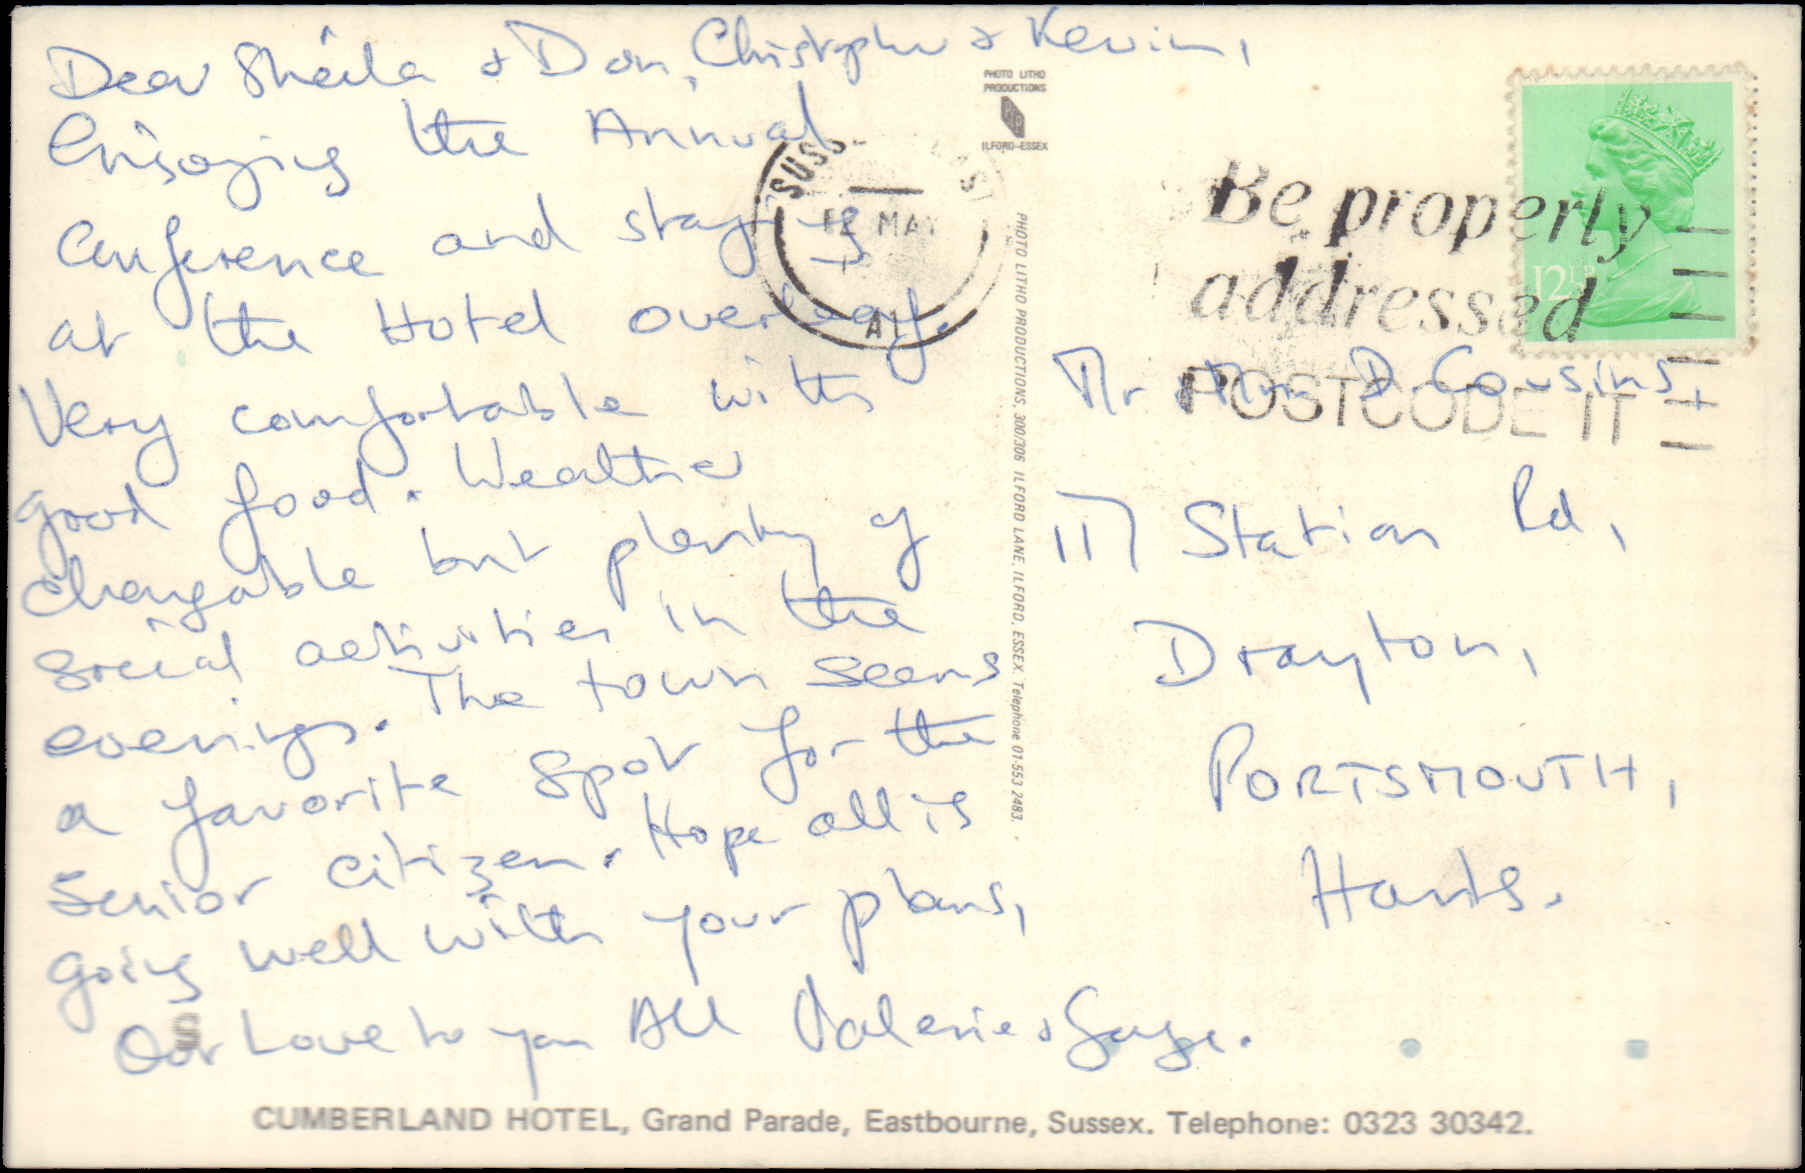 Dear Sheila & Don, Christopher & Kevin,
Enjoying the Annual
Conference and staying
at the Hotel overleaf.
Very comfortable with
good food. Weather
changable but plenty of
social activities in the
evenings. The town seems
a favorite spot for the
senior citizen. Hope all is
going well with your plans,
Our Love to you All Valerie &
PHOTO LITHO
PRODUCTIONS
ILFORD-ESSEX
PHOTO LITHO PRODUCTIONS, 300/306 ILFORD LANE, ILFORD, ESSEX. Telephone 01-553 2483.
12 MAY
A
Be properly
addressed
POSTCODE IT
12½P
Mr & Mrs D Cousins,
117 Station Rd,
Drayton,
PORTSMOUTH,
Hants.
CUMBERLAND HOTEL, Grand Parade, Eastbourne, Sussex. Telephone: 0323 30342.